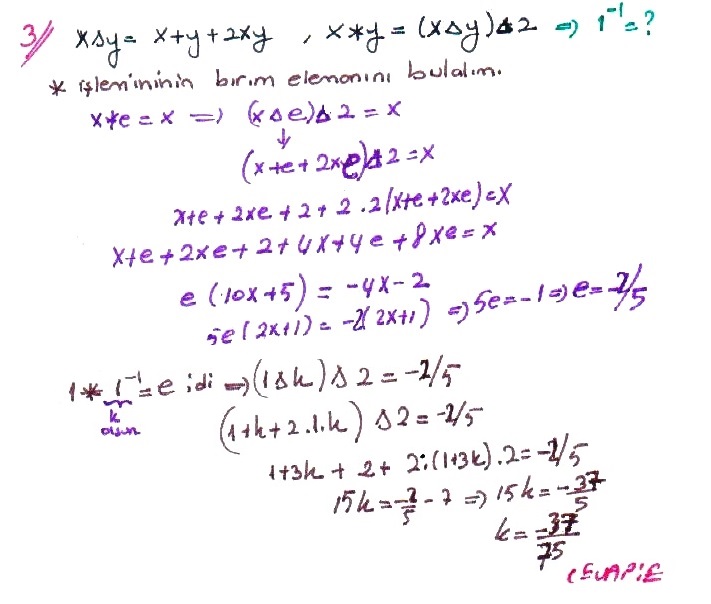 3// xΔy = x+y+2xy , x*y = (xΔy)Δ2 => 1⁻¹ = ?
* işlem'ininin birim elemanını bulalım.
x*e = x => (xΔe)Δ2 = x
↓
(x+e+2xe)Δ2 = x
x+e+2xe+2+2.2(x+e+2xe) = x
x+e+2xe+2+4x+4e+8xe = x
e(10x+5) = -4x-2
5e(2x+1) = -2(2x+1) => 5e = -1 => e = -2/5
1 * 1⁻¹ = e idi => (1Δk)Δ2 = -2/5
k
olsun
(1+k+2.1.k)Δ2 = -2/5
1+3k+2+2.(1+3k).2 = -2/5
15k = -2/5 - 7 => 15k = -37/5
k = -37/75
CEVAP:E